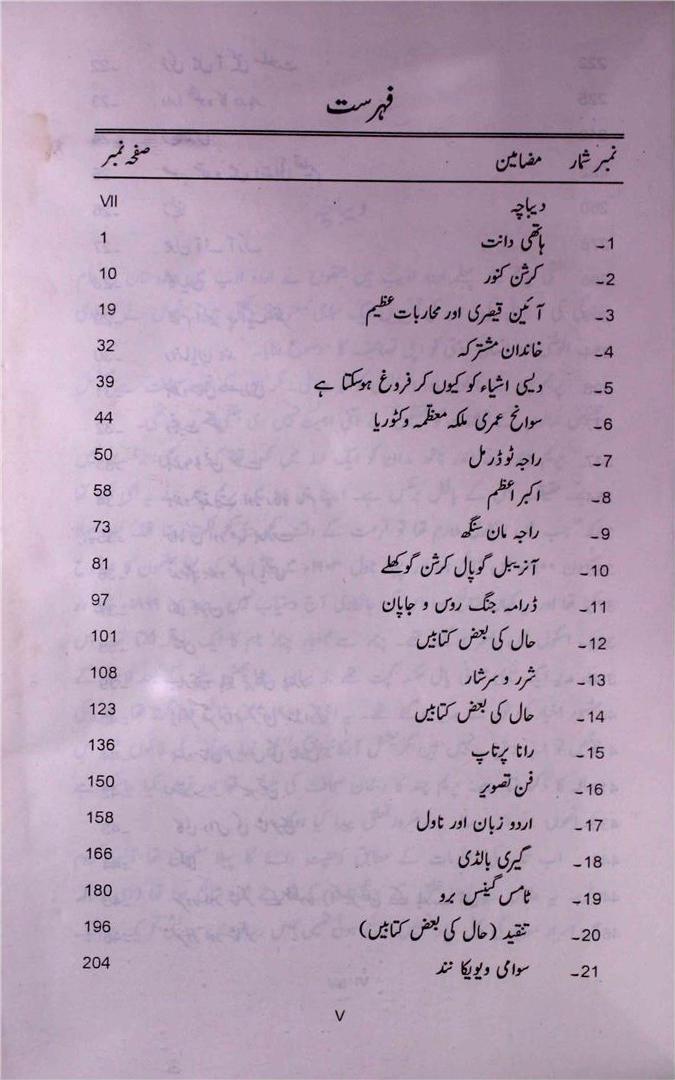 فہرست
نمبر شمار مضامین صفحہ نمبر
دیباچہ VII
1۔ ہاتھی دانت 1
2۔ کرشن کنور 10
3۔ آئین قیصری اور محاربات عظیم 19
4۔ خاندان مشترکہ 32
5۔ دیسی اشیاء کو کیوں کر فروغ ہوسکتا ہے 39
6۔ سوانح عمری ملکہ معظمہ وکٹوریا 44
7۔ راجہ ٹوڈرمل 50
8۔ اکبر اعظم 58
9۔ راجہ مان سنگھ 73
10۔ آنریبل گوپال کرشن گوکھلے 81
11۔ ڈرامہ جنگ روس و جاپان 97
12۔ حال کی بعض کتابیں 101
13۔ شرر و سرشار 108
14۔ حال کی بعض کتابیں 123
15۔ رانا پرتاپ 136
16۔ فن تصویر 150
17۔ اردو زبان اور ناول 158
18۔ گیری بالڈی 166
19۔ ٹامس گینس برو 180
20۔ تنقید (حال کی بعض کتابیں) 196
21۔ سوامی ویویکا نند 204
V